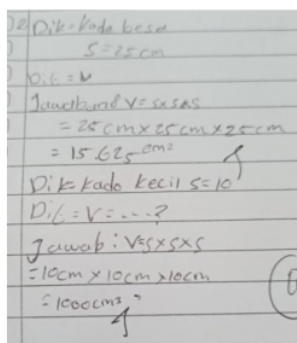 02 Dik = Kado besa
S = 25 cm
Dit = V
Jawaband V = S x S x S
= 25 cm x 25 cm x 25 cm
= 15.625 cm²
Dik = kado kecil S = 10
Dit = V = ....?
Jawab : V = S x S x S
= 10 cm x 10 cm x 10 cm
= 1000 cm³